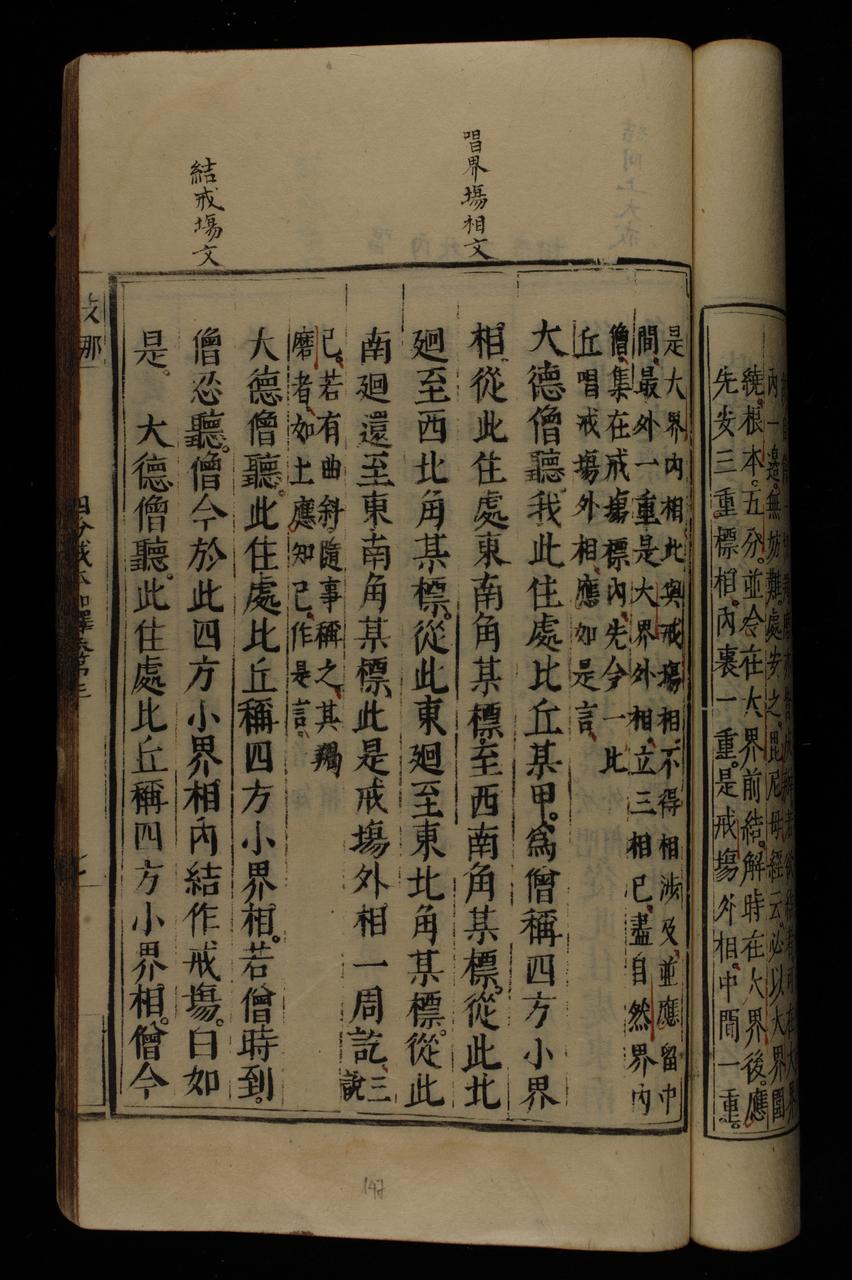 內一邊。無妨難處安之。毘尼母經云。必以大界圍
繞根本。五分。並令在大界前結。解時在大界後。應
先安三重標相。內裏一重。是戒塲外相。中間一重。
唱界塲相文
結戒塲文
是大界內相。此與戒塲相。不得相涉及。並應留中
間。最外一重。是大界外相。立三相已。盡自然界內
僧。集在戒塲標內。先令一比
丘唱戒塲外相。應如是言。
大德僧聽。我此住處比丘某甲。爲僧稱四方小界
相。從此住處東南角某標。至西南角某標。從此北
廻至西北角某標。從此東廻至東北角某標。從此
南廻還至東南角某標。此是戒塲外相一周訖。三說
已。若有曲斜。隨事稱之。其羯
磨者。如上應知已。作是言。
大德僧聽。此住處比丘稱四方小界相。若僧時到。
僧忍聽。僧今於此四方小界相內結作戒塲。白如
是。 大德僧聽。此住處比丘稱四方小界相。僧今
147